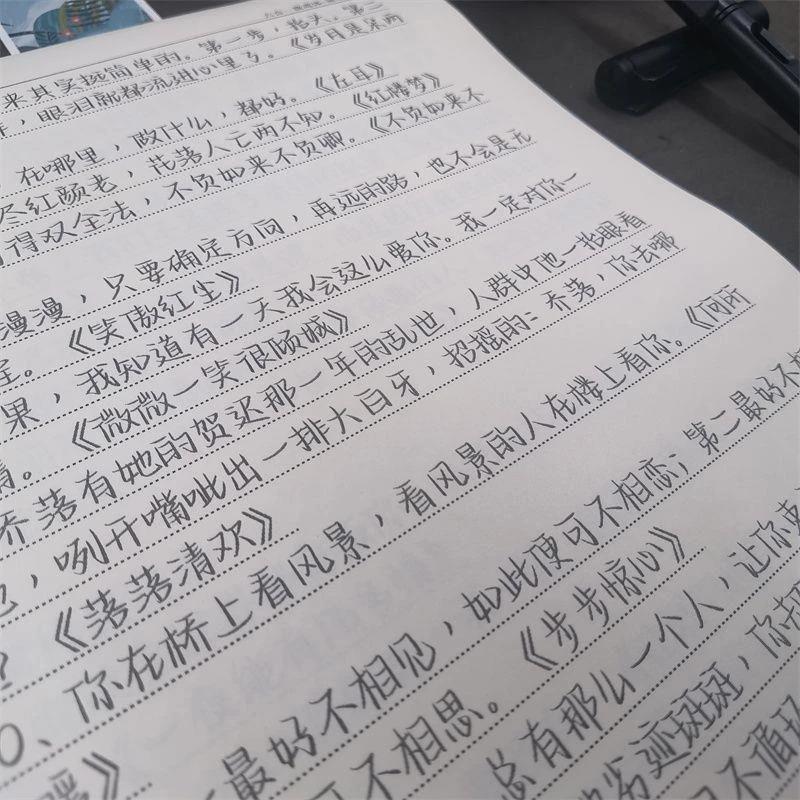 来其实挺简单的。第一步，抬头。第二
，眼泪就都流进心里了。《岁月是朵两
在哪里，做什么，都好。《左耳》
尽红颜老，花落人亡两不知。《红楼梦》
得双全法，不负如来不负卿。《不负如来不
漫漫，只要确定方向，再远的路，也不会是无
《笑傲红尘》
果，我知道有一天我会这么爱你。我一定对你一
情。《微微一笑很倾城》
乔落有她的贺迟那一年的乱世，人群中他一张眼看
，咧开嘴呲出一排大白牙，招摇的：乔落，你去哪
？《落落清欢》
0、你在桥上看风景，看风景的人在楼上看你。《何所
暖》
最好不相见，如此便可不相恋；第二最好不相
可不相思。《步步惊心》
总有那么一个人，让你
斑斑，你
不循